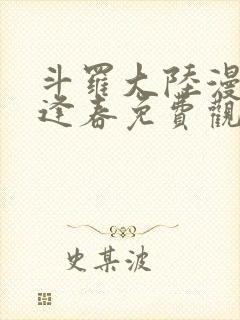 斗羅大陸漫
逢春免費觀
史某波